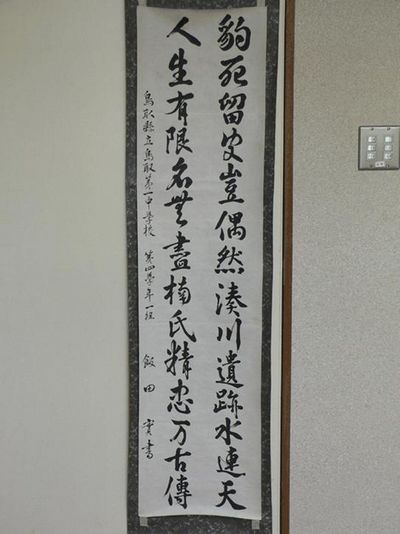 豹死留皮豈偶然湊川遺跡水連天
人生有限名無盡楠氏精忠万古傳
鳥取縣立鳥取第一中學校 第四學年一組 飯田實書